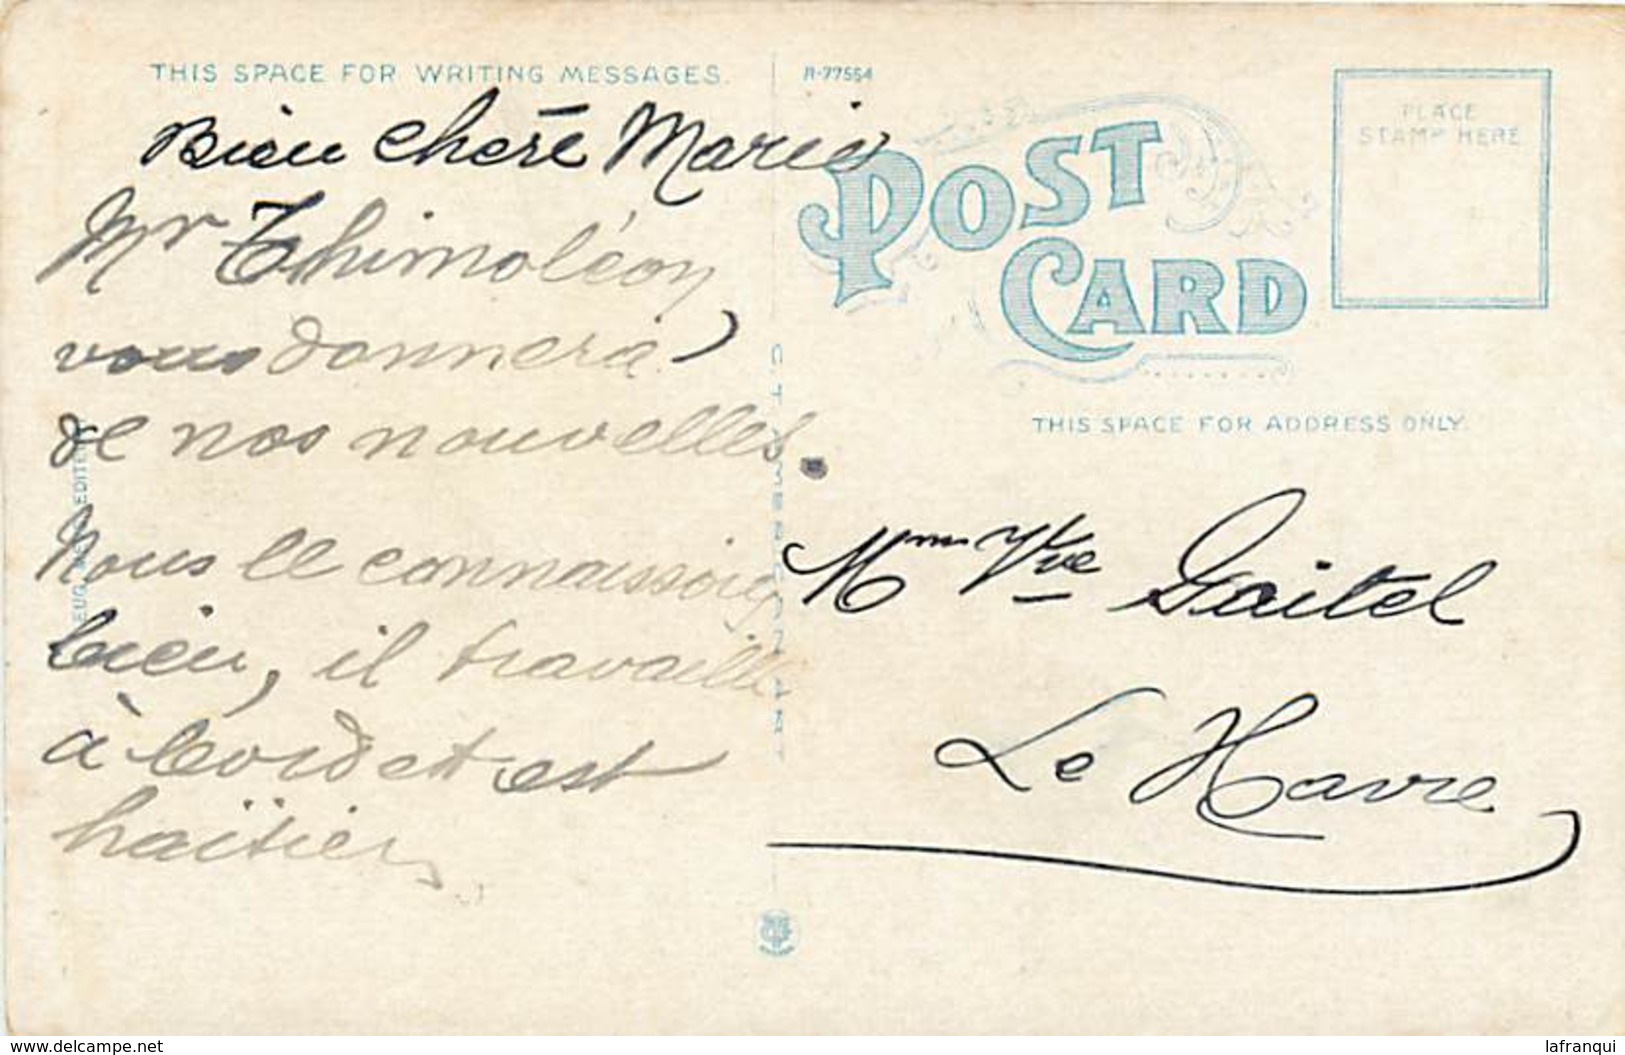 THIS SPACE FOR WRITING MESSAGES.
Bien chère Marie
Mr Thimoléon
vous donnera
de nos nouvelles.
Nous le connaissons
bien, il travaille
à bord et est
haïtien
R-77554
POST CARD
PLACE
STAMP HERE
THIS SPACE FOR ADDRESS ONLY
Mme Vve Gaitel
Le Havre
www.delcampe.net
lafranqui